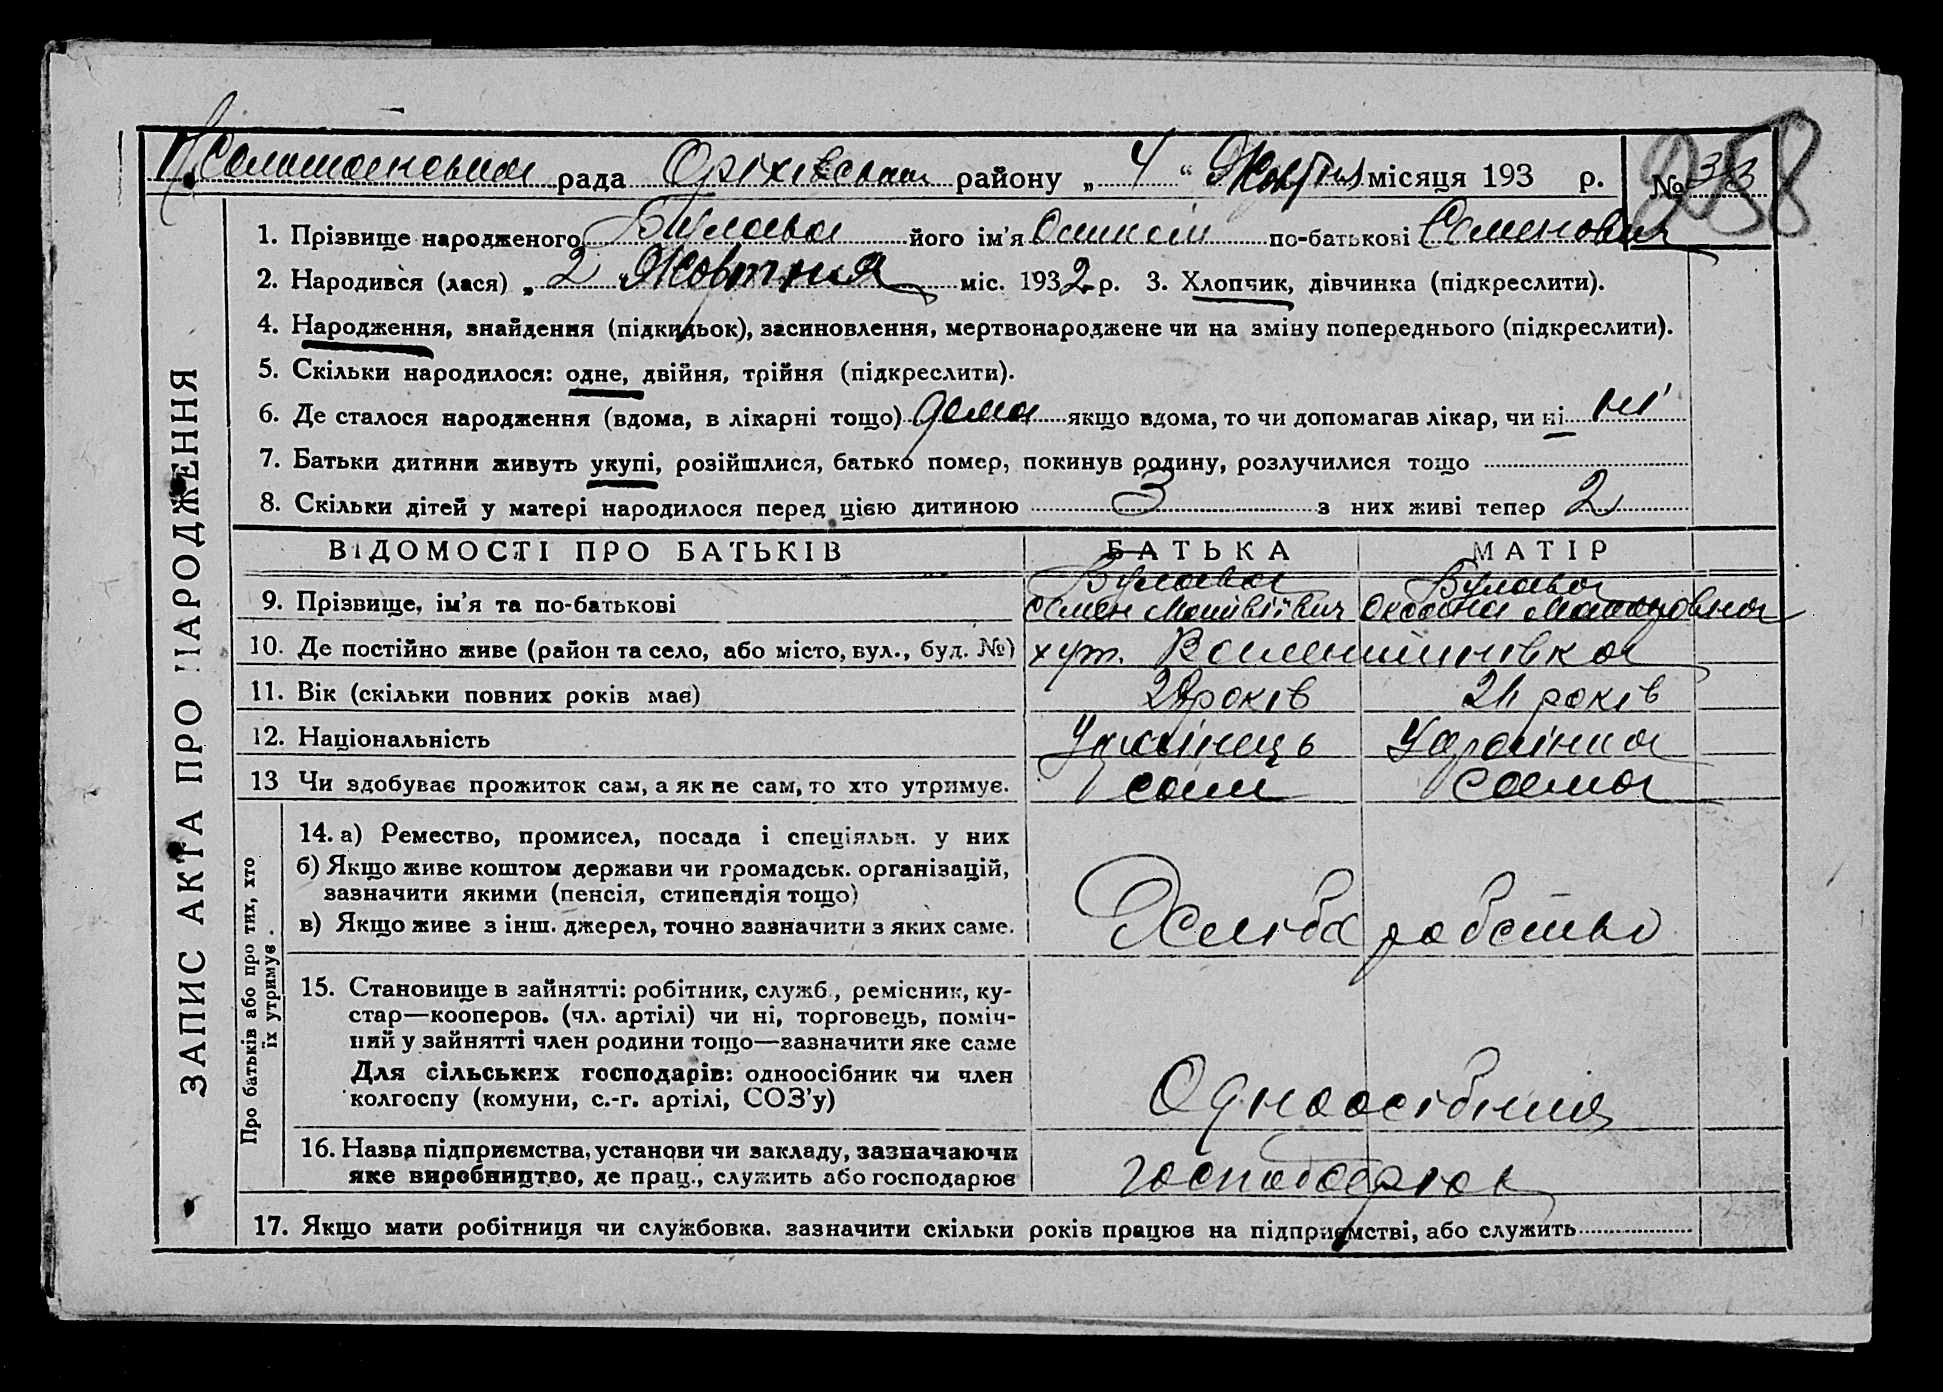 рада Оріхівська району „ 4 “ Жовтня місяця 193 р. № 33
258
ЗАПИС АКТА ПРО НАРОДЖЕННЯ
1. Прізвище народженого Булава його ім'я по-батькові Семенович
2. Народився (лася) „ 2 Жовтня міс. 1932 р. 3. Хлопчик, дівчинка (підкреслити).
4. Народження, знайдення (підкидьок), засиновлення, мертвонароджене чи на зміну попереднього (підкреслити).
5. Скільки народилося: одне, двійня, трійня (підкреслити).
6. Де сталося народження (вдома, в лікарні тощо) дома якщо вдома, то чи допомагав лікар, чи ні ні
7. Батьки дитини живуть укупі, розійшлися, батько помер, покинув родину, розлучилися тощо
8. Скільки дітей у матері народилося перед цією дитиною 3 з них живі тепер 2
ВІДОМОСТІ ПРО БАТЬКІВ БАТЬКА МАТІР
Булава Булава
9. Прізвище, ім'я та по-батькові Семен Матвійович Оксана
10. Де постійно живе (район та село, або місто, вул., буд. №) хут.
11. Вік (скільки повних років має) років 24 років
12. Національність Українець Українка
13 Чи здобуває прожиток сам, а як не сам, то хто утримує. сам сама
Про батьків або про тих, хто їх утримує.
14. а) Ремество, промисел, посада і спеціяльн. у них
б) Якщо живе коштом держави чи громадськ. організацій,
зазначити якими (пенсія, стипендія тощо)
в) Якщо живе з інш. джерел, точно зазначити з яких саме. Хліборобство
15. Становище в зайнятті: робітник, служб., ремісник, ку-
стар—кооперов. (чл. артілі) чи ні, торговець, поміч-
ний у зайнятті член родини тощо—зазначити яке саме
Для сільських господарів: одноосібник чи член
колгоспу (комуни, с.-г. артілі, СОЗ'у) Одноосібник
16. Назва підприємства, установи чи закладу, зазначаючи
яке виробництво, де прац., служить або господарює
17. Якщо мати робітниця чи службовка. зазначити скільки років працює на підприємстві, або служить